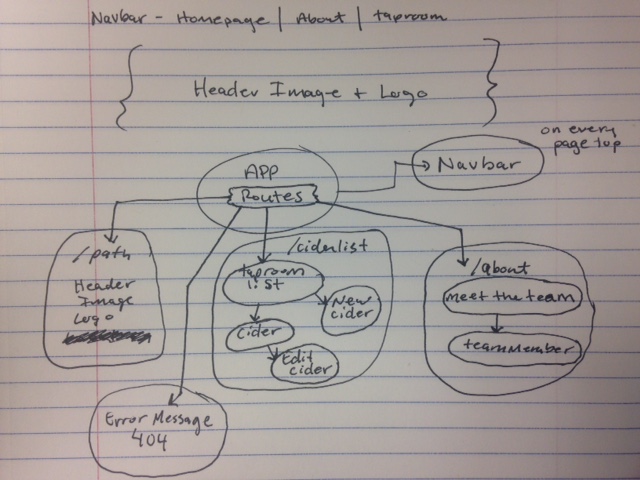 Navbar - Homepage | About | taproom
Header Image + Logo
on every
page top
APP
Routes
Navbar
/path
Header
Image
Logo
/ciderlist
taproom
list
New
cider
Cider
Edit
cider
/about
meet the team
teamMember
Error Message
404